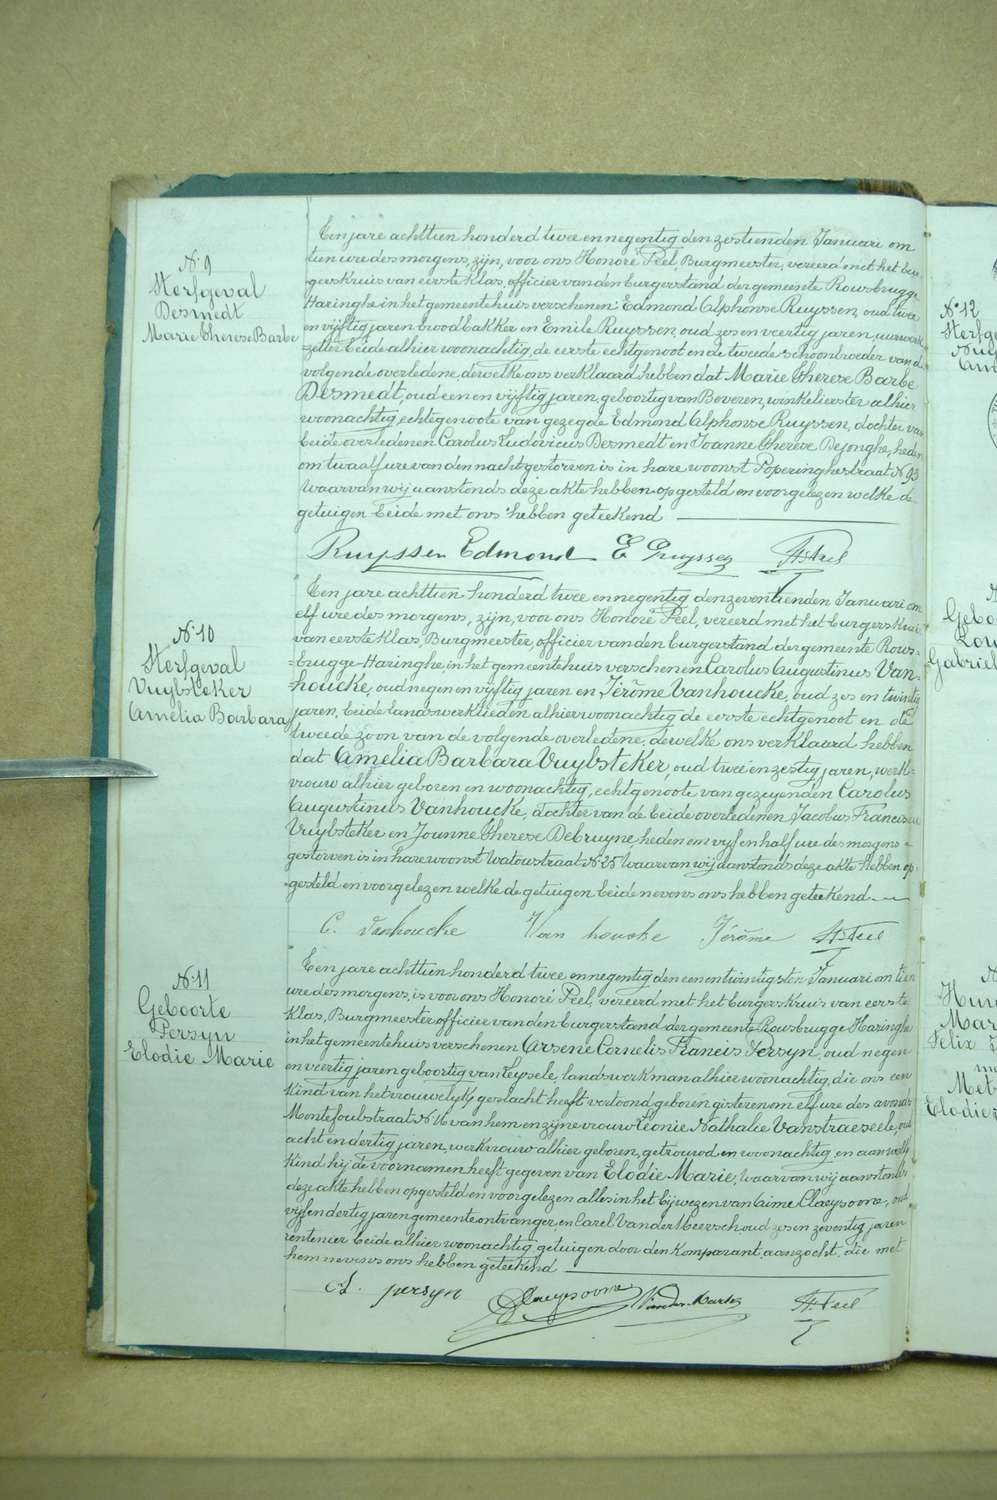 N° 9
Sterfgeval
Desmedt
Marie Therese Barbe
Een jare achttien honderd twee en negentig den zestienden Januari om
tien ure des morgens, zijn, voor ons Honoré Peel, Burgmeester, vereerd met het bur-
gerskruis van eerste Klas, officier van den burgerstand der gemeente Rousbrugge
Haringhe in het gemeentehuis verschenen Edmond Alphonse Ruyssen, oud twee
en vijftig jaren broodbakker en Emile Ruyssen oud zes en veertig jaren, uurwerk-
zetter beide alhier woonachtig, de eerste echtgenoot en de tweede schoonbroeder van de
volgende overledene, dewelke ons verklaard hebben dat Marie Therese Barbe
Desmedt, oud een en vijftig jaren, geboortig van Beveren, winkelierster alhier
woonachtig, echtgenoote van gezegde Edmond Alphonse Ruyssen, dochter van
beide overledenen Carolus Ludovicus Desmedt en Joanne Therese Dejonghe, heden
om twaalf ure van den nacht gestorven is in hare woonst Poperinghestraat N° 93
Waarvan wij aanstonds deze akte hebben opgesteld en voorgelezen welke de
getuigen beide met ons hebben geteekend
Ruyssen Edmond E Ruyssen H. Peel
N° 10
Sterfgeval
Vuylsteker
Amelia Barbara
Een jare achttien honderd twee en negentig den zeventienden Januari om
elf ure des morgens, zijn, voor ons Honoré Peel, vereerd met het burgerskruis
van eerste Klas, Burgmeester, officier van den burgerstand der gemeente Rous-
brugge-Haringhe, in het gemeentehuis verschenen Carolus Augustinus Van-
houcke, oud negen en vijftig jaren en Jérôme Vanhoucke, oud zes en twintig
jaren, beide landswerklieden alhier woonachtig de eerste echtgenoot en de
tweede zoon van de volgende overledene, dewelke ons verklaard hebben
dat Amelia Barbara Vuylsteker, oud twee en zestig jaren, werk-
vrouw alhier geboren en woonachtig, echtgenoote van gezegenden Carolus
Augustinus Vanhoucke, dochter van de beide overledenen Jacobus Franciscus
Vuylsteker en Joanne Therese Debruyne heden om vijf en half ure des morgens
gestorven is in hare woonst Watoustraat N° 25 Waarvan wij aanstonds deze akte hebben op-
gesteld en voorgelezen welke de getuigen beide nevens ons hebben geteekend
C. Vanhoucke Van houcke Jérôme H. Peel
N° 11
Geboorte
Persyn
Elodie Marie
Een jare achttien honderd twee en negentig den een en twintigsten Januari om tien
ure des morgens, is voor ons Honoré Peel, vereerd met het burgerskruis van eerste
Klas, Burgmeester officier van den burgerstand der gemeente Rousbrugge Haringhe
in het gemeentehuis verschenen Arsene Cornelis Francis Persyn, oud negen
en veertig jaren geboortig van Leysele, landswerkman alhier woonachtig, die ons een
Kind van het vrouwelijk geslacht heeft vertoond geboren gisteren om elf ure des avonds
Montefoubstraat N° 16 van hem en zijne vrouw Leonie Nathalie Vanstraeseele, oud
acht en dertig jaren, werkvrouw alhier geboren, getrouwd en woonachtig en aan welk
Kind hij de voornamen heeft gegeven van Elodie Marie, Waarvan wij aanstonds
deze akte hebben opgesteld en voorgelezen alles in het bijwezen van Aime Claeysoone, oud
vijf en dertig jaren gemeente ontvanger, en Carel Van der Meersch, oud zes en zeventig jaren
rentenier beide alhier woonachtig getuigen door den Komparant aanzocht, die met
hem nevens ons hebben geteekend
A. persyn Claeysoone H. Peel
N° 12